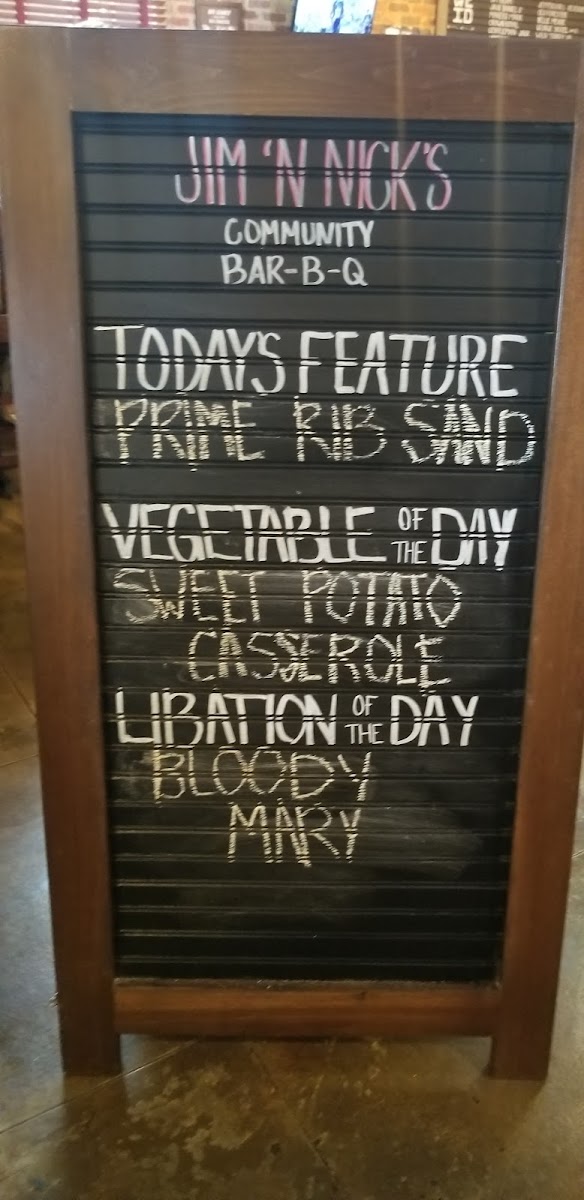 JIM 'N NICK'S
COMMUNITY
BAR-B-Q
TODAY'S FEATURE
PRIME RIB SAND
VEGETABLE OF THE DAY
SWEET POTATO
CASSEROLE
LIBATION OF THE DAY
BLOODY
MARY